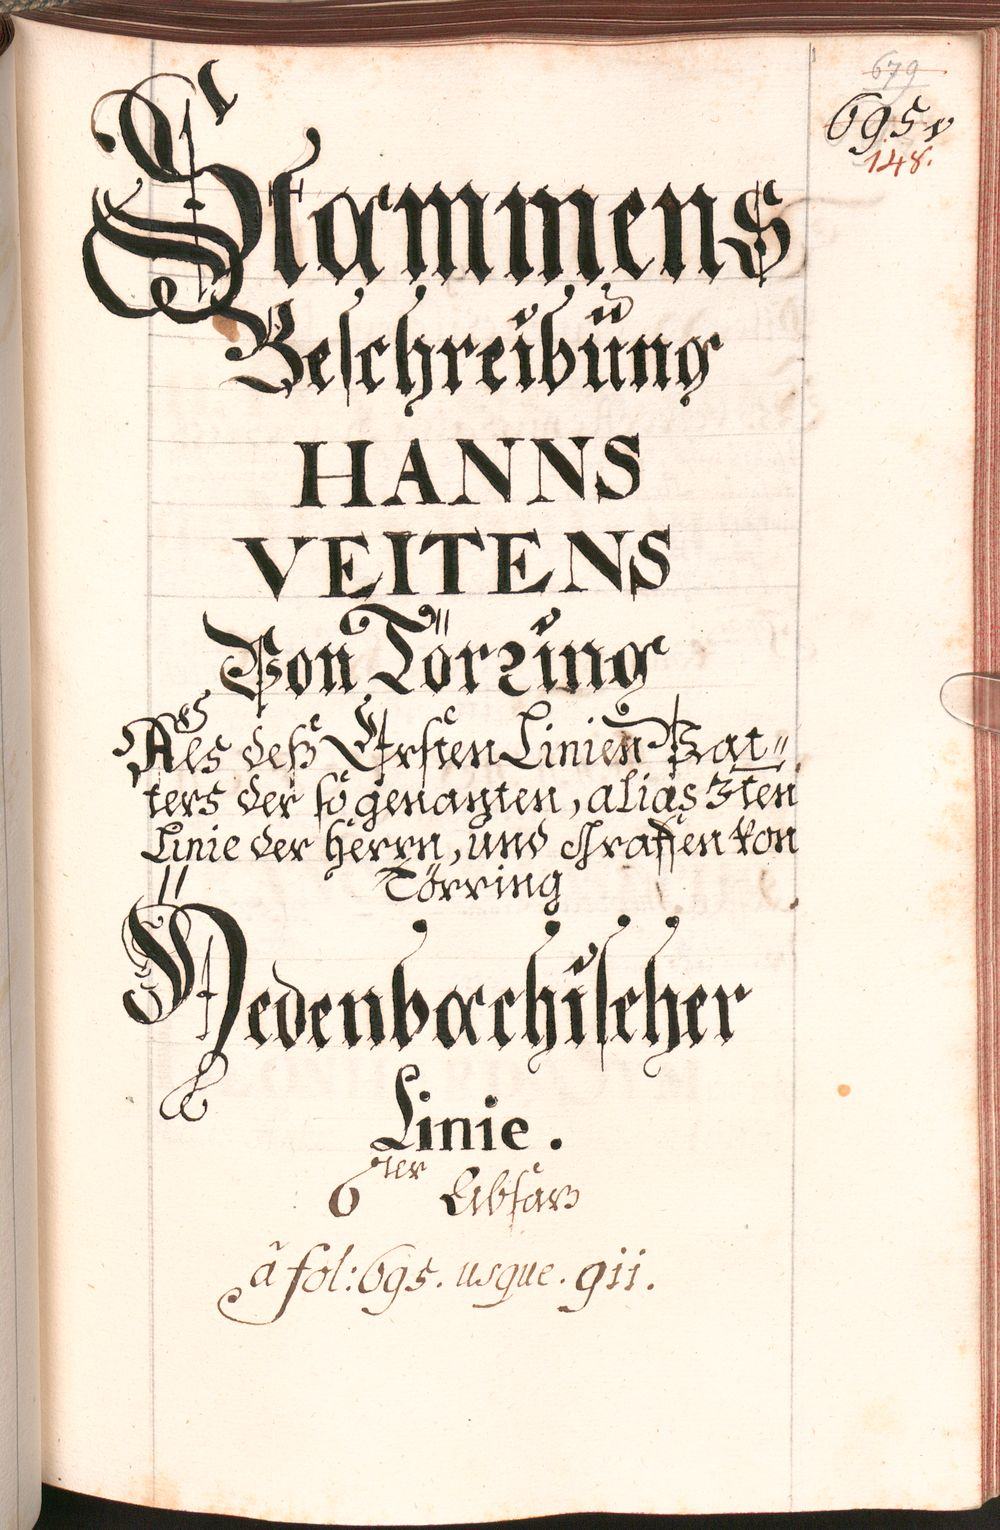 679
695
148.
Stammens
Beschreibüng
HANNS
VEITENS
Von Törring
Als deß Ersten Linien Vat=
ters der so genanten, alias 3ten
Linie der Herrn, und Graffen von
Törring
Jedenbachischer
Linie.
6ter Absaz
â fol: 695. usque. 911.